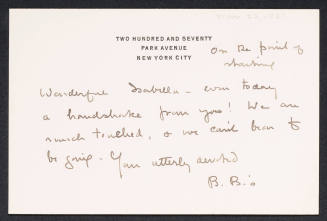 TWO HUNDRED AND SEVENTY
PARK AVENUE
NEW YORK CITY
On the point of
starting
Wonderful Isabella - even today
a handshake from you! We are
much touched, & we can't bear to
be going - Your utterly devoted
B. B.'s